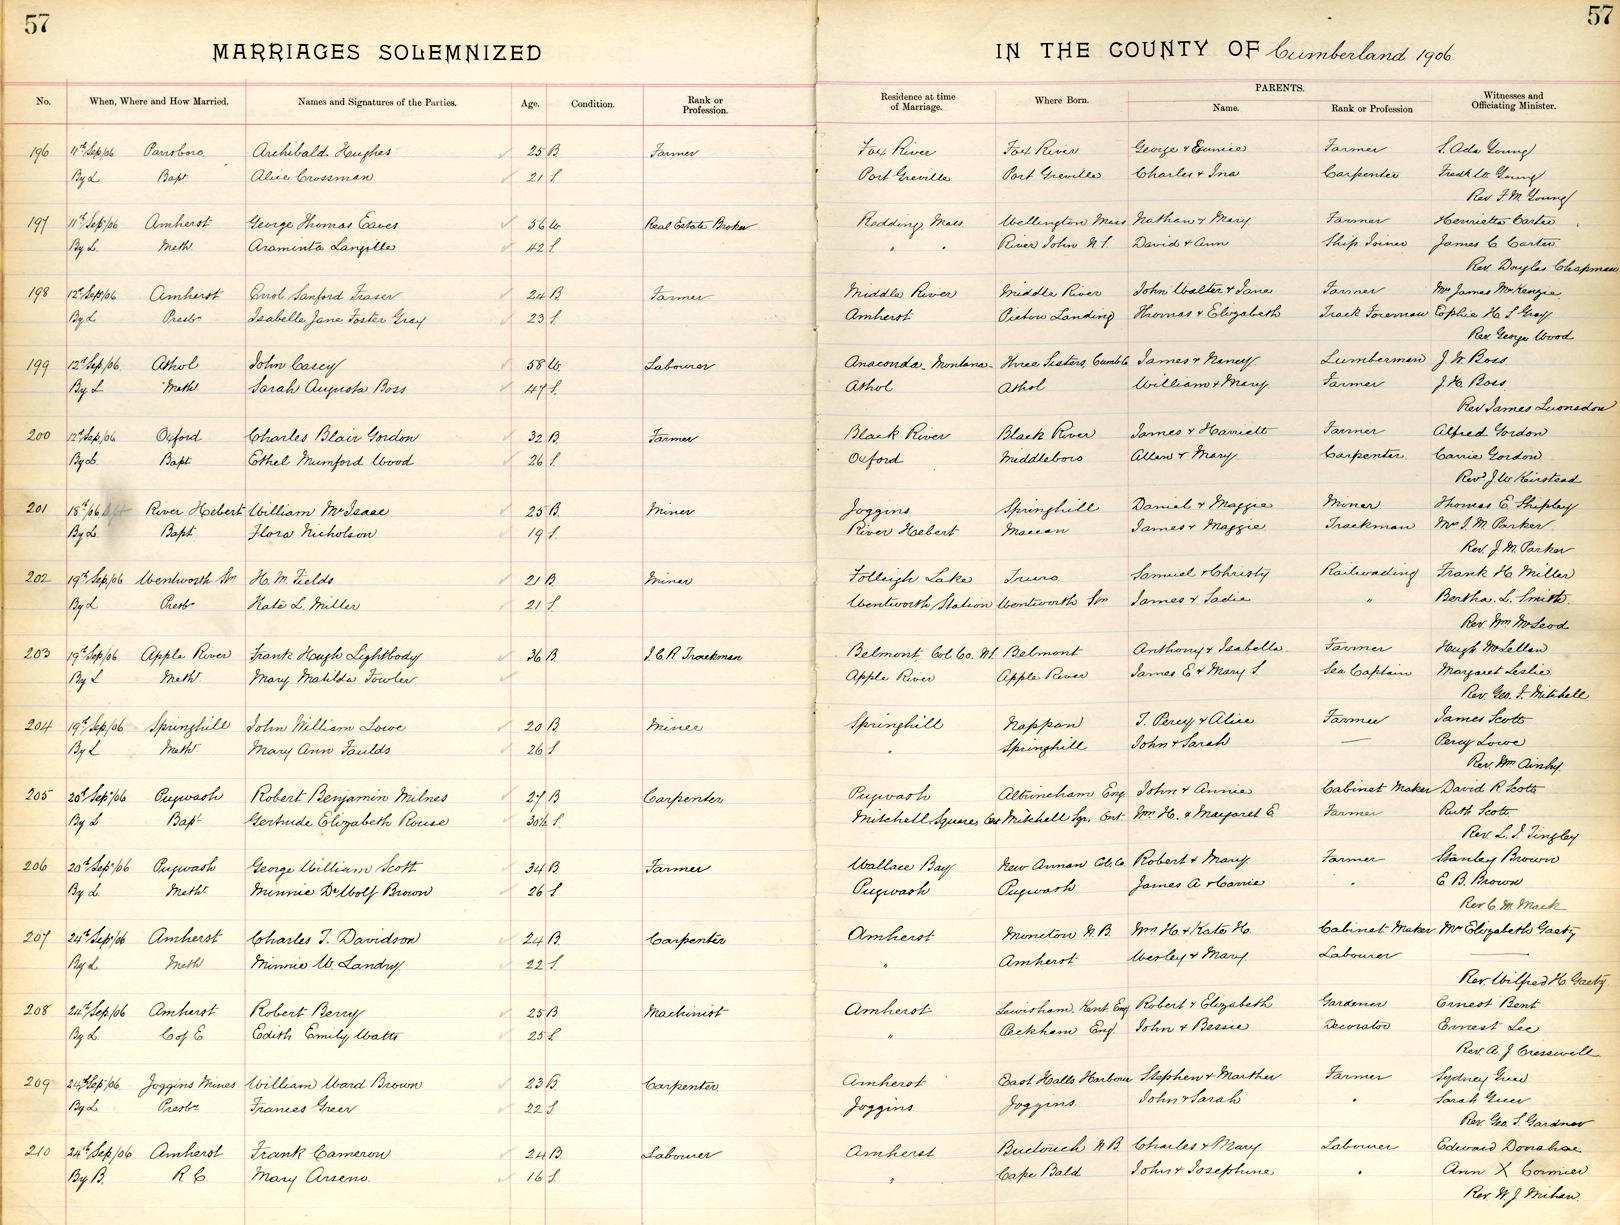 57 57
MARRIAGES SOLEMNIZED IN THE COUNTY OF Cumberland 1906.
No. When, Where and How Married. Names and Signatures of the Parties. Age. Condition. Rank or Profession. Residence at time of Marriage. Where Born. PARENTS. Name. Rank or Profession Witnesses and Officiating Minister.
196 11th Sep/06 Parrsboro Archibald Hughes 25 B Farmer Fox River Fox River George & Eunice Farmer S. Ada Young
By L Bapt Alice Crossman 21 S Port Greville Port Greville Charles & Ina Carpenter Fredk W. Young
Rev F. M. Young
197 11th Sep/06 Amherst George Thomas Eaves 56 W Real Estate Broker Redding Mass Wellington Mass Nathan & Mary Farmer Henrietta Carter
By L Meth Araminta Langille 42 S " " River John N.S. David & Ann Ship Joiner James C Carter
Rev. Douglas Chapman
198 12th Sept/06 Amherst Errol Sanford Fraser 24 B Farmer Middle River Middle River John Walter & Jane Farmer Mrs James McKenzie
By L Presbn Isabelle Jane Foster Gray 23 S Amherst Pictou Landing Thomas & Elizabeth Track Foreman Ephie H. S Gray
Rev. George Wood
199 12th Sep/06 Athol John Casey 58 W Labourer Anaconda Montana Three Sisters, Cumb Co James & Nancy Lumberman J. W. Boss
By L Meth Sarah Augusta Boss 47 S Athol Athol William & Mary Farmer J. H. Boss
Rev James Lumsden
200 12th Sep/06 Oxford Charles Blair Gordon 32 B Farmer Black River Black River James & Harriett Farmer Alfred Gordon
By L Bapt Ethel Mumford Wood 26 S Oxford Middleboro Allen & Mary Carpenter Carrie Gordon
Revd J. W. Keirstead
201 18th/06 River Hebert William McIsaac 25 B Miner Joggins Springhill Daniel & Maggie Miner Thomas E Shipley
By L Bapt Flora Nicholson 19 S River Hebert Maccan James & Maggie Trackman Mrs J. M. Parker
Rev. J. M. Parker
202 19th Sep/06 Wentworth Stn H. M. Fields 21 B Miner Folleigh Lake Truro Samuel & Christy Railroading Frank H. Miller
By L Presbn Kate L. Miller 21 S Wentworth Station Wentworth Stn James & Sadie " Bertha. L. Smith
Rev. Wm McLeod
203 19th Sep/06 Apple River Frank Hugh Lightbody 36 B I.C.R Trackman Belmont Col Co. N.S. Belmont Anthony & Isabella Farmer Hugh McLellan
By L Meth Mary Matilda Fowler Apple River Apple River James E & Mary S. Sea Captain Margaret Leslie
Rev Geo. F. Mitchell
204 19th Sep/06 Springhill John William Lowe 20 B Miner Springhill Nappan T. Percy & Alice Farmer James Scott
By L Meth Mary Ann Faulds 26 S " Springhill John & Sarah — Percy Lowe
Rev. Wm Ainley
205 20th Sep/06 Pugwash Robert Benjamin Milnes 27 B Carpenter Pugwash Altrincham Eng. John & Annie Cabinet Maker David R Scott
By L Bapt Gertrude Elizabeth Rouse 30½ S. Mitchell Square Ont Mitchell Sqr. Ont Wm H. & Margaret E Farmer Ruth Scott
Rev. L. J. Tingley
206 20th Sep/06 Pugwash George William Scott 34 B Farmer Wallace Bay New Annan Col. Co. Robert & Mary Farmer Stanley Brown
By L Meth Minnie DeWolf Brown 26 S Pugwash Pugwash James A & Carrie " E B. Brown
Rev C. M. Mack
207 24th Sep/06 Amherst Charles T. Davidson 24 B. Carpenter Amherst Moncton N.B. Wm H. & Kate H. Cabinet Maker Mrs Elizabeth Gaetz
By L Meth Minnie W. Landry 22 S. " Amherst Wesley & Mary Labourer —
Rev. Wilfred H. Gaetz
208 24th Sep/06 Amherst Robert Berry 25 B Machinist Amherst Lewisham. Kent. Eng Robert & Elizabeth Gardener Ernest Bent
By L. C of E Edith Emily Watts 25 S " Peckham Eng. John & Bessie Decorator Ernest Lee
Rev. A. J. Cresswell
209 24th Sep/06 Joggins Mines William Ward Brown 23 B. Carpenter Amherst East Halls Harbour Stephen & Marther Farmer Sydney Greer
By L. Presbn Frances Greer 22 S. Joggins Joggins John & Sarah " Sarah Greer
Rev. Geo. S. Gardner
210 24th Sep/06 Amherst Frank Cameron 24 B. Labourer Amherst Buctouch N.B. Charles & Mary Labourer Edward Donahoe
By B. R C. Mary Arseno. 16 S. " Cape Bald John & Josephine " Ann X Cormier
Rev. W. J. Mihan.